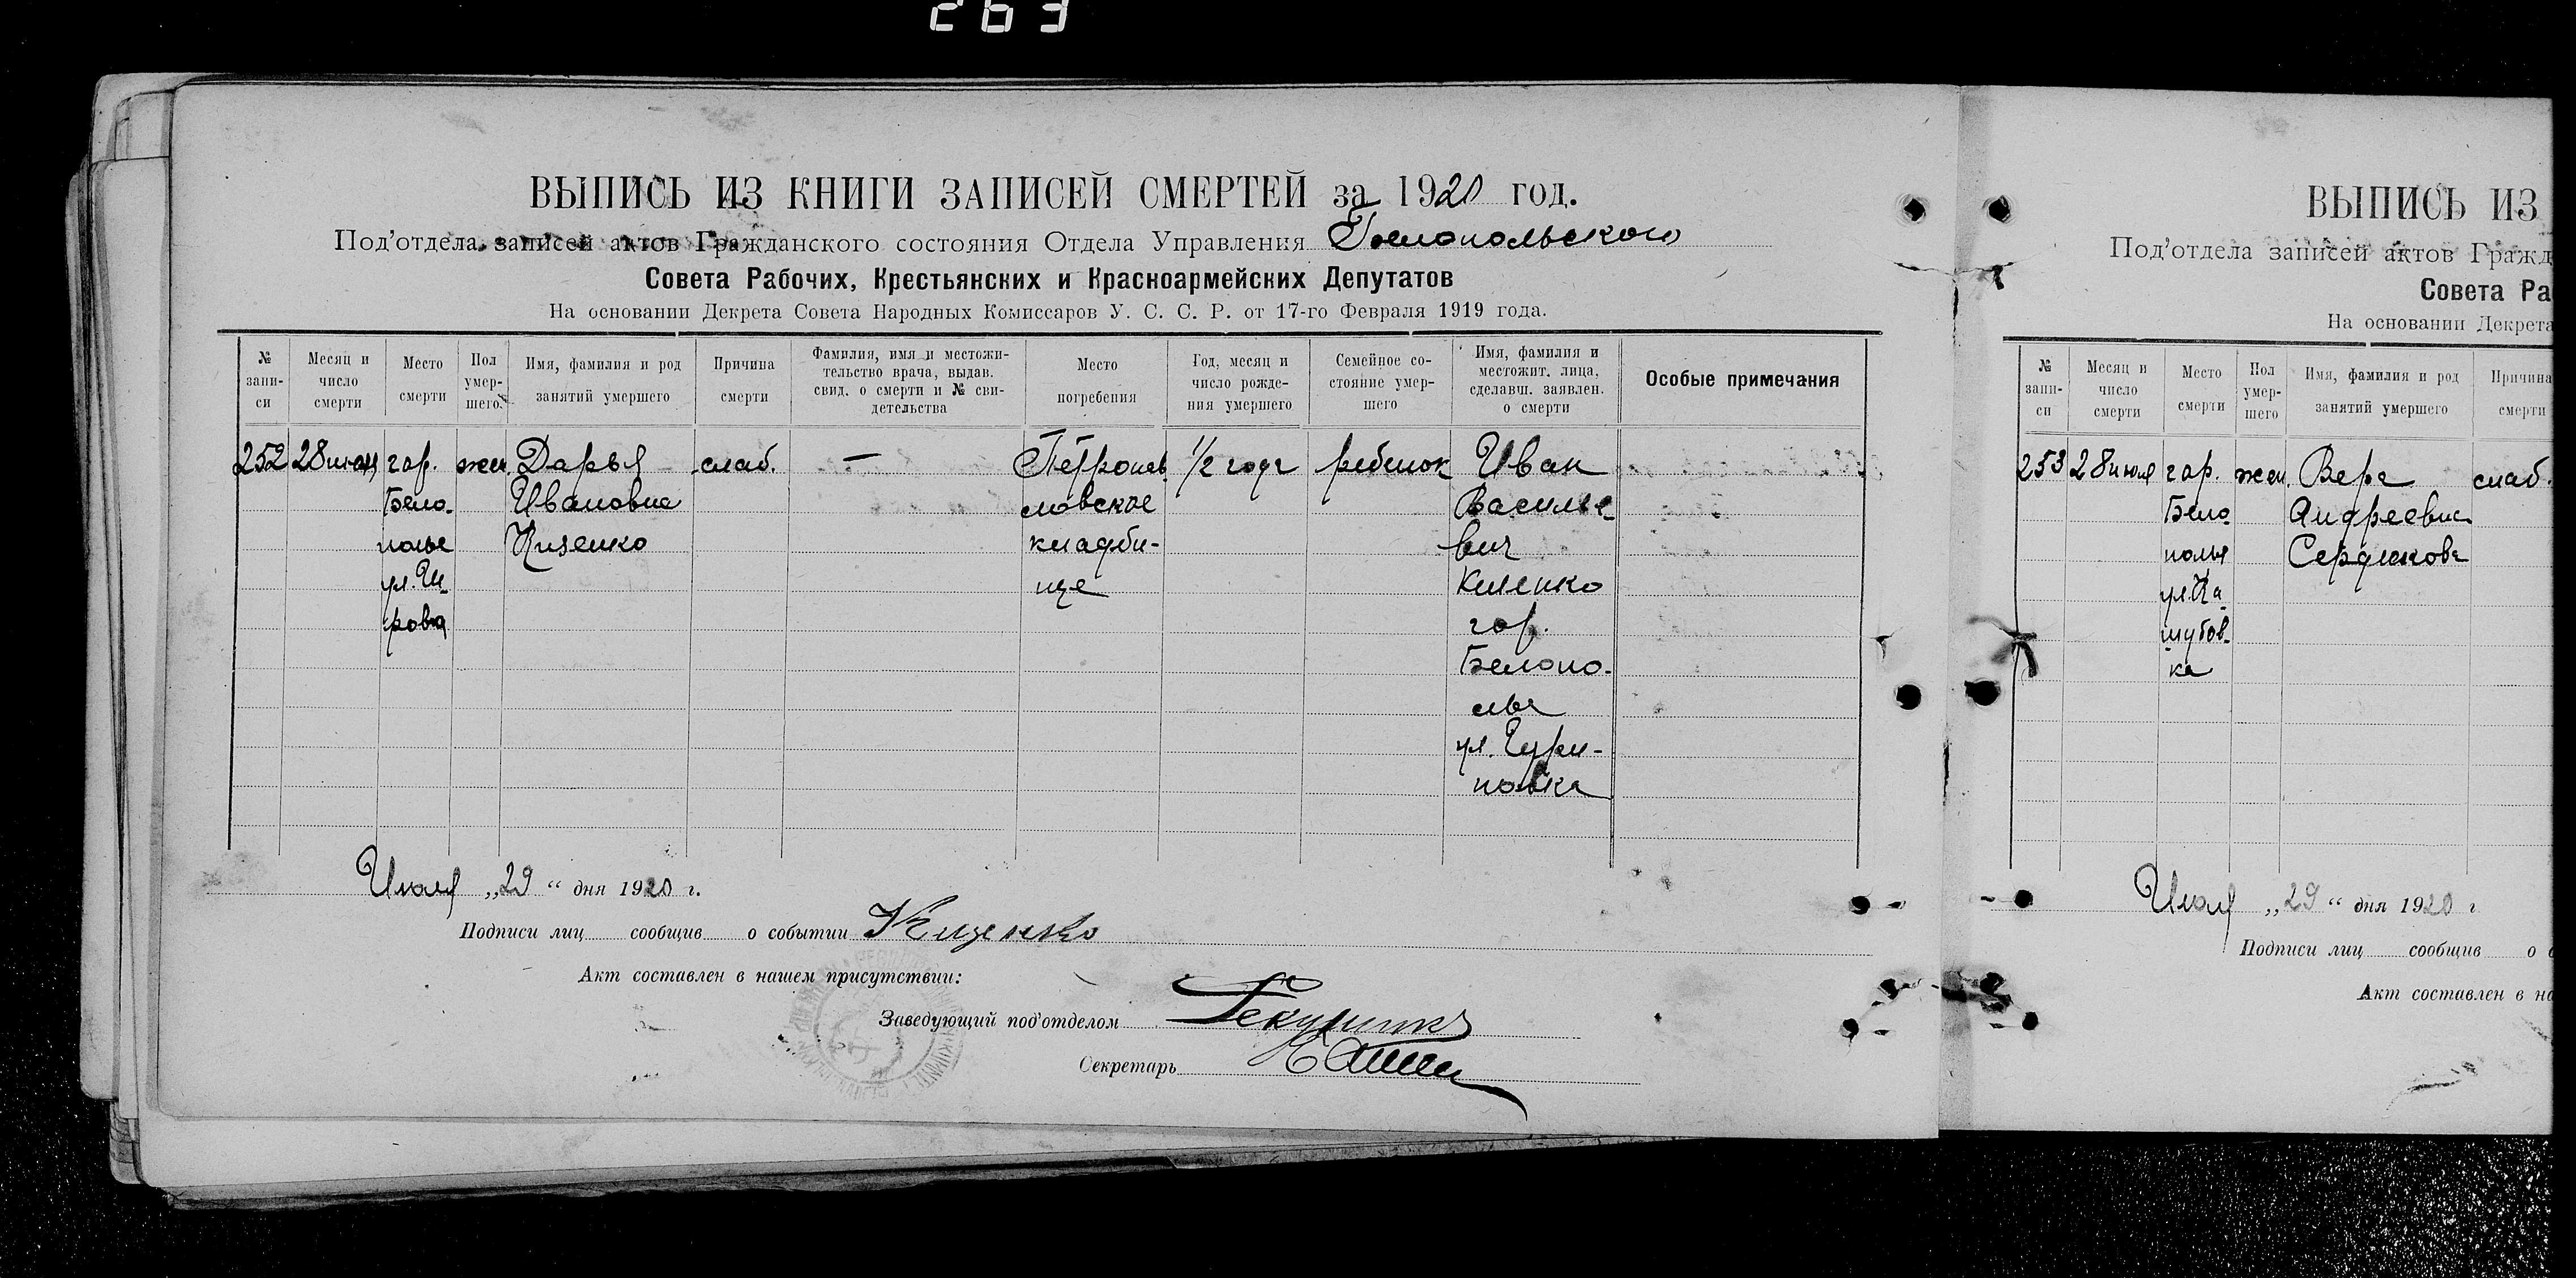 263
ВЫПИСЬ ИЗ КНИГИ ЗАПИСЕЙ СМЕРТЕЙ за 1920 год.
Под'отдела записей актов Гражданского состояния Отдела Управления Белопольского
Совета Рабочих, Крестьянских и Красноармейских Депутатов
На основании Декрета Совета Народных Комиссаров У. С. С. Р. от 17-го Февраля 1919 года.
№ запи-
си
Месяц и
число
смерти
Место
смерти
Пол
умер-
шего.
Имя, фамилия и род
занятий умершего
Причина
смерти
Фамилия, имя и местожи-
тельство врача, выдав.
свид. о смерти и № сви-
детельства
Место
погребения
Год, месяц и
число рожде-
ния умершего
Семейное со-
стояние умер-
шего
Имя, фамилия и
местожит. лица,
сделавш. заявлен.
о смерти
Особые примечания
252
28 июля
гор.
Бело-
полье
ул.
жен
Дарья
Ивановна
слаб.
—
Петропав
ловское
кладби-
ще
1/2 года
ребенок
Иван
Василье-
вич
гор.
Белопо-
лье
ул.
Июля „29 “ дня 1920 г.
Подписи лиц сообщив о событии
Акт составлен в нашем присутствии:
Заведующий под'отделом
Секретарь
ВЫПИСЬ ИЗ
Под'отдела записей актов Гражд
Совета Ра
На основании Декрета
№ запи-
си
Месяц и
число
смерти
Место
смерти
Пол
умер-
шего
Имя, фамилия и род
занятий умершего
Причина
смерти
253
28 июля
гор.
Бело
полье
жен.
Вера
Андреевна
Сердюкова
слаб.
Июля „29 “ дня 1920 г
Подписи лиц сообщив о
Акт составлен в на